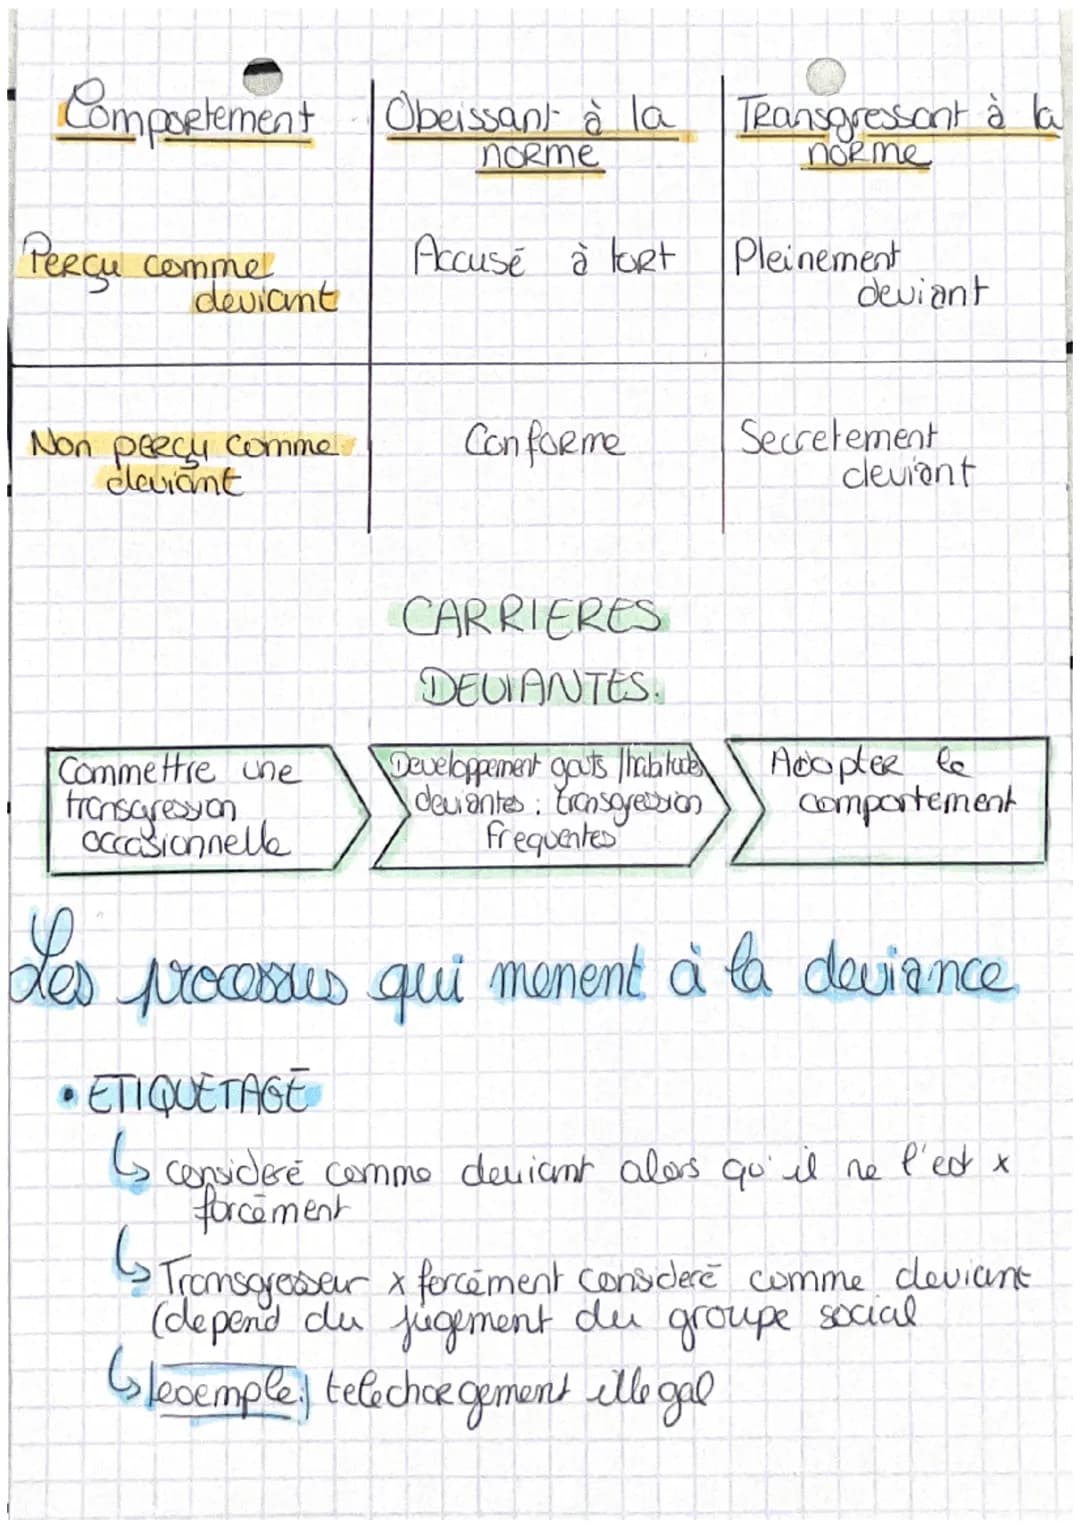 Comportement
Obeissant à la
norme
Transgressant à la
norme
Perçu comme
deviant
Accusé à tort
Pleinement
deviant
Non perçu comme
deviant
Conforme
Secretement
deviant
CARRIERES
DEVIANTES.
Commettre une
transgression
occasionnelle
Developpement gouts / habitudes
deviantes : transgression
frequentes
Adopter le
comportement
Les processus qui menent à la deviance
• ETIQUETAGE
↳ consideré comme deviant alors qu'il ne l'est x
forcément
↳ Transgresseur x forcément consideré comme deviant
(depend du jugement du groupe social
↳ exemple: telechargement illegal